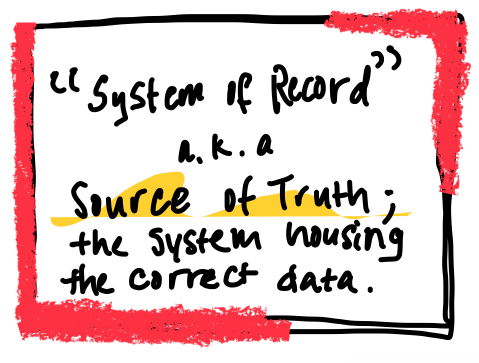 "System of Record"
a.k.a
Source of Truth;
the system housing
the correct data.